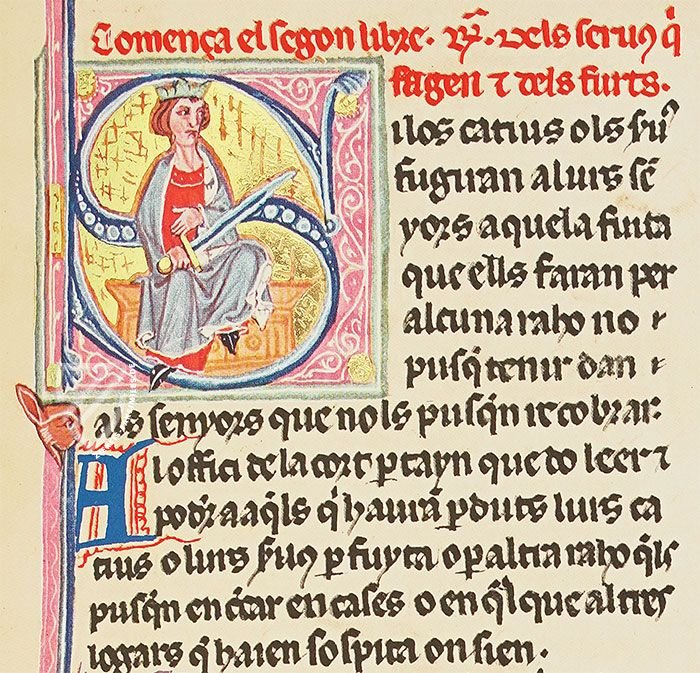 Comença el segon libre. Rͫ. Dels seruꝯ q̄
fugen ⁊ dels furts.
SI los catius o ls ẜuꝯ
fugiran a lurs sẽ
yors aquela fuita
que ells faran per
alcuna raho no
pusq̄ tenir dan
als senyors que no ls pusq̄n recobrar.
Al offici de la cort ꝑtayn que do leer ⁊
poder a aq̄ls q̄ hauiã ꝑduts lurs ca
tius o lurs ẜuꝯ ꝑ fuyta o ꝑ altra raho q̄ls
pusq̄n encercar en cases o en q̄l que altres
logars q̄ haien sospita on sien.